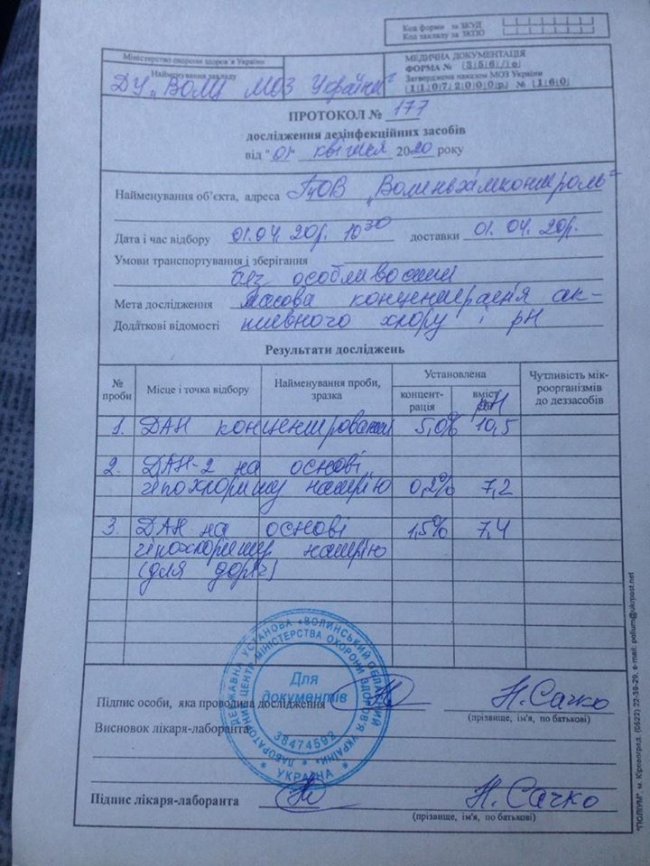 Код форми за ЗКУД
Код закладу за ЗКПО
Міністерство охорони здоров'я України
Найменування закладу
ДУ „ВОЛЦ МОЗ України"
МЕДИЧНА ДОКУМЕНТАЦІЯ
ФОРМА № 356/о
Затверджена наказом МОЗ України
11072000р. № 160
ПРОТОКОЛ № 177
дослідження дезінфекційних засобів
від "01" квітня 2020 року
Найменування об'єкта, адреса ТзОВ „Волиньхімконтроль"
Дата і час відбору 01.04.20р. 10 30 доставки 01.04.20р.
Умови транспортування і зберігання
без особливостей
Мета дослідження Масова концентрація ак-
Додаткові відомості тивного хлору і рН
Результати досліджень
№ проби
Місце і точка відбору
Найменування проби, зразка
Установлена
концент-рація
вміст рН
Чутливість мік-роорганізмів до деззасобів
1. ДАН концентрований 5,0% 10,5
2. ДАН-2 на основі
гіпохлориту натрію 0,2% 7,2
3. ДАН на основі 1,5% 7,4
гіпохлориту натрію
(для доріг)
ДЕРЖАВНА УСТАНОВА «ВОЛИНСЬКИЙ ОБЛАСНИЙ
ЛАБОРАТОРНИЙ ЦЕНТР МІНІСТЕРСТВА ОХОРОНИ ЗДОРОВ'Я УКРАЇНИ»
Для
документів
38474592
* УКРАЇНА *
Підпис особи, яка проводила дослідження Н. Сачко
(прізвище, ім'я, по батькові)
Висновок лікаря-лаборанта
Підпис лікаря-лаборанта Н. Сачко
(прізвище, ім'я, по батькові)
"ПОЛІУМ", м. Кіровоград. (0522) 32-39-29, e-mail: polium@ukrpost.net